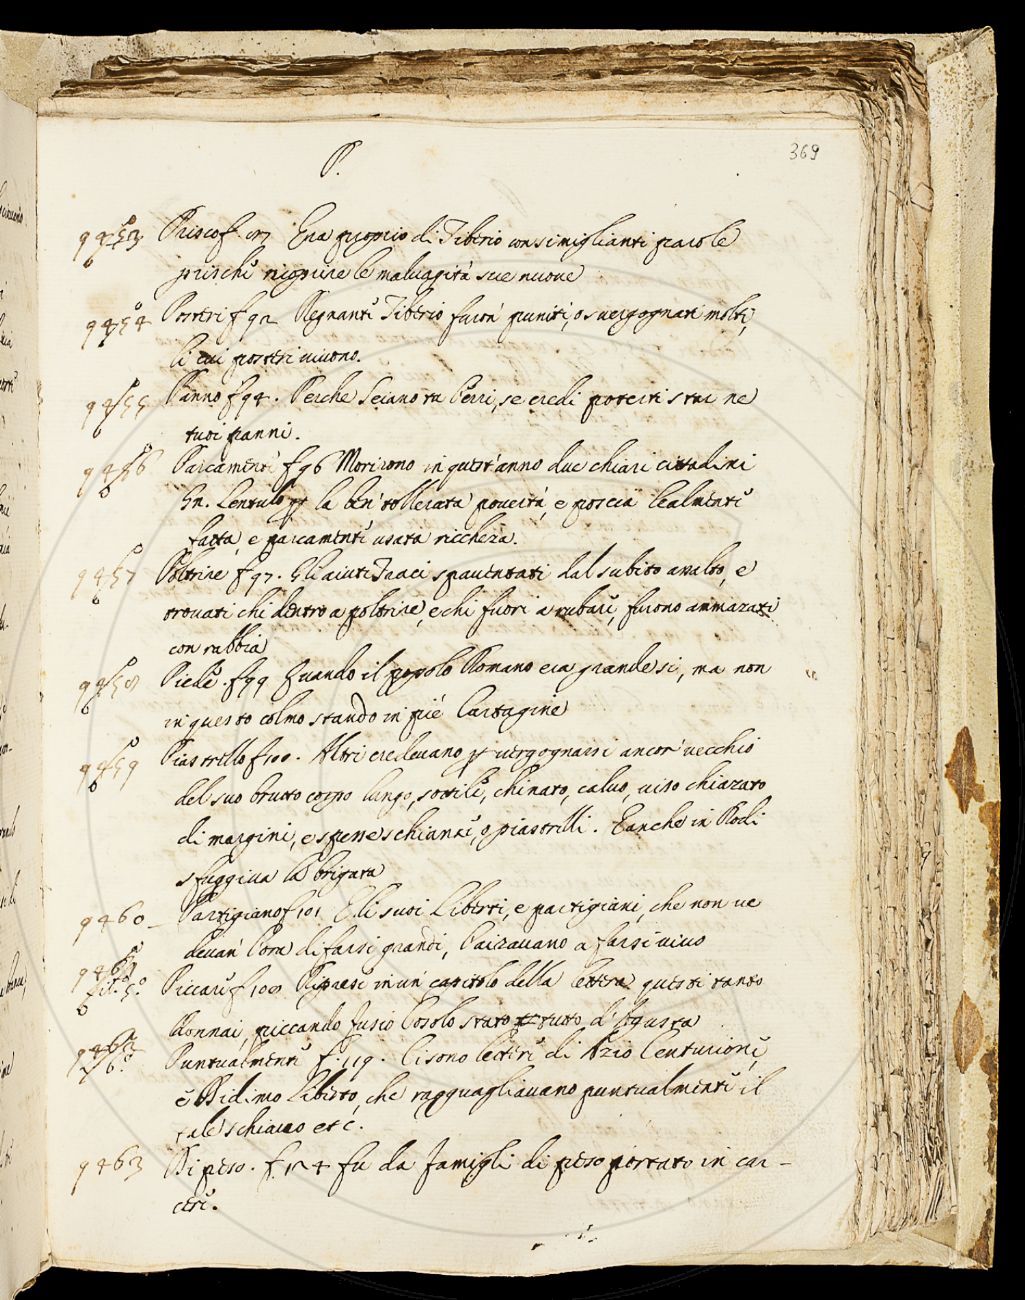 369
P.
9453 Prisco f. 87 Era proprio di Tiberio con simiglianti parole
prische ricoprire le malvagità sue nuove
9454 Posteri f 92 Regnante Tiberio furon' puniti, o svergognati molti,
li cui posteri vivono.
9455 Panno f 94. Perche Seiano tu Perri, se credi poterti star ne
tuoi panni.
9456 Parcamente f 96 Morirono in quest'anno due chiari cittadini
Gn. Lentulo la ben' tollerata povertà, e poscia lealmente
fatta, e parcamente usata riccheza.
9457 Poltrire f 97. Gli aiuti Traci spaventati dal subito asalto, e
trovati chi dentro a poltrire, e chi fuori a rubare, furono ammazati
con rabbia
9458 Piede. f 99 Quando il popolo Romano era grande si, ma non
in questo colmo stando in pié Cartagine
9459 Piastrello f 100. Altri credevano vergognarsi ancor' vecchio
del suo brutto corpo lungo, sottile, chinato, calvo, viso chiazato
di margini, e spesse schianze, o piastrelli. E anche in Rodi
sfuggiva la brigata
9460 Partigiano f 101 E li suoi Liberti, e partigiani, che non ve
devan' l'ora di farsi grandi, l'aizavano a farsi vivo
Piccare f 108 Riprese in un' capitolo della lettera questi tanto
Ronnai, piccando Fusio Cosolo stato tutto d'Agusta
Puntualmente f. 119. Ci sono lettere di Azio Centurione,
e Didimo Liberto, che ragguagliavano puntualmente il
tale schiavo etc.
9463 Di peso. f 124 fu da famigli di peso portato in car-
cere.